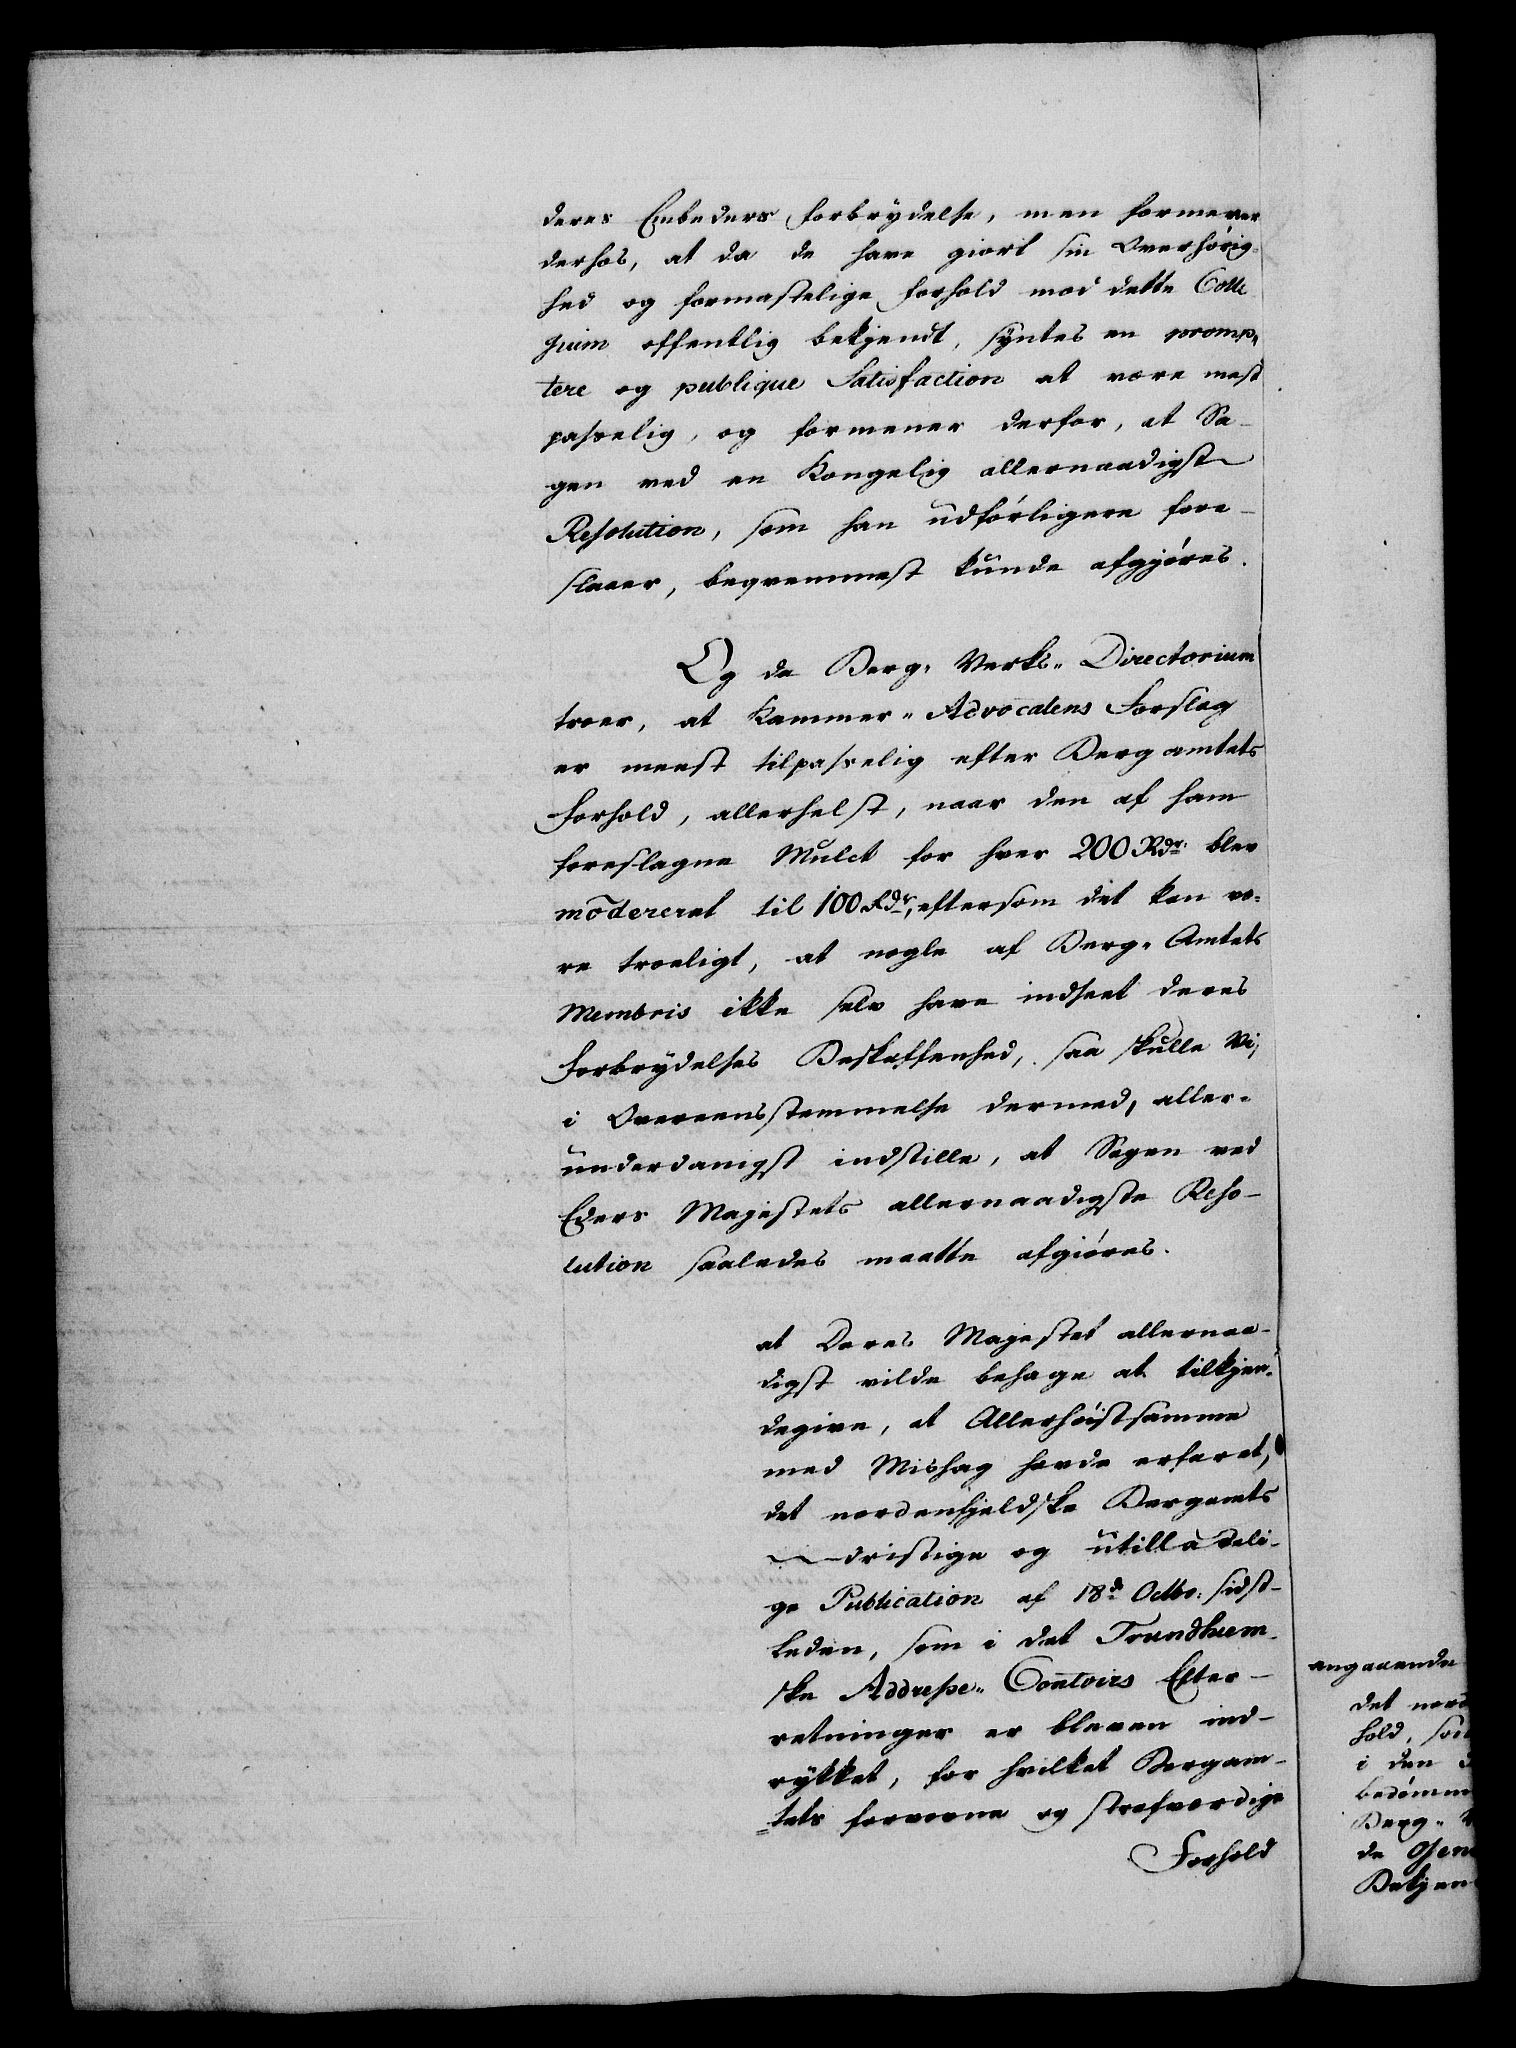 deres Embeders forbrydelse, men formener
derhos, at da de have giort sin Overhørig-
hed og formastelige forhold mod dette Colle
gium offentlig bekjendt, syntes en promp„
tere og publique Satisfaction at være mest
passelig, og formener derfor, at Sa-
gen ved en Kongelig allernaadigst
Resolution, som han udførligere fore-
slaaer, beqvemmest kunde afgjøres.
Og da Berg„ Verks„ Directorium
troer, at Kammer„ Advocatens Forslag
er meest tilpasselig efter Bergamtets
Forhold, allerhelst, naar den af ham
foreslagne Mulct for hver 200 Rdr. blev
modereret til 100 Rdr, eftersom det kan væ-
re troeligt, at nogle af Berg„ Amtets
Membris ikke selv have indseet deres
Forbrydelses Beskaffenhed, saa skulle Vi,
i Overeensstemmelse dermed, aller-
underdanigst indstille, at Sagen ved
Eders Majestets allernaadigste Reso-
lution saaledes maatte afgiøres.
at Deres Majestet allernaa-
digst vilde behage at tilkjen-
degive, at Allerhøistsamme
med Mishag havde erfaret,
det nordenfjeldske Bergamts
dristige og utilladeli-
ge Publication af 18d Octbr. sidst-
leden, som i det Trundhiem-
ske Addresse„ Contoirs Efter-
retninger er bleven ind-
rykket, for hvilket Bergam-
tets forvovne og strafværdige
Forhold
angaaende
det nord
hold, som
i den
bedømm
Berg„
de Gen
Bekjen